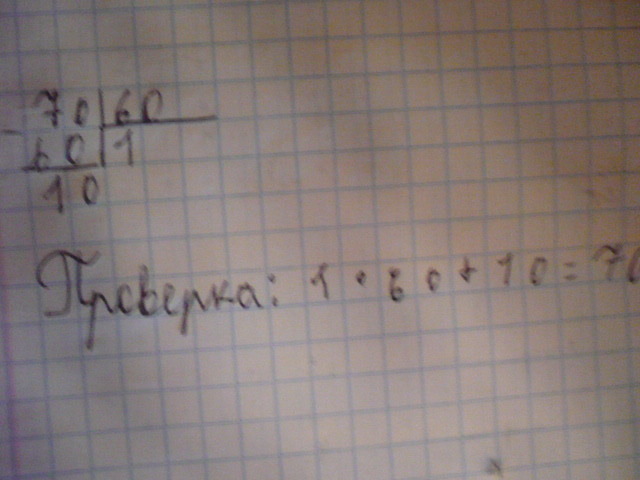 70|60
- 60|1
10
Проверка: 1 · 60 + 10 = 70